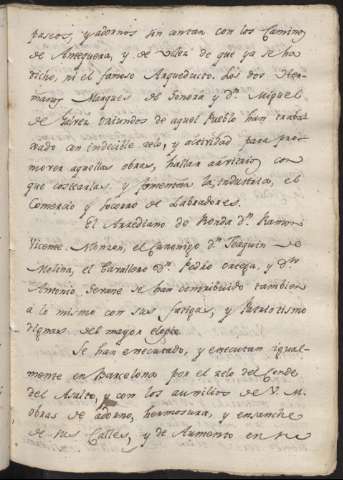 paseos, y adornos sin contar con los Caminos
de Antequera, y de Velez de que ya se ha
dicho, ni el famoso Aqueducto. Los dos Her-
manos Marques de Sonora y Dn. Miguel
de Galvez oriundos de aquel Pueblo han traba-
xado con indecible zelo, y actividad para pro-
mover aquellas obras, hallar arvitrios con
que costearlas y fomentar la industria, el
Comercio y socorro de Labradores.
El Arzediano de Ronda Dn. Ramon
Vicente Monzon, el Canonigo Dn. Joaquin de
Molina, el Cavallero Dn. Pedro Ortega, y Dn.
Antonio Jerome se han contribuido tambien
a lo mismo con sus fatigas, y Patriotismo
dignas del mayor elogio.
Se han executado, y executan igual-
mente en Barcelona por el zelo del Conde
del Asalto, y con los auxilios de V. M.
obras de adorno, hermosura, y ensanche
de sus Calles, y de Aumento en su